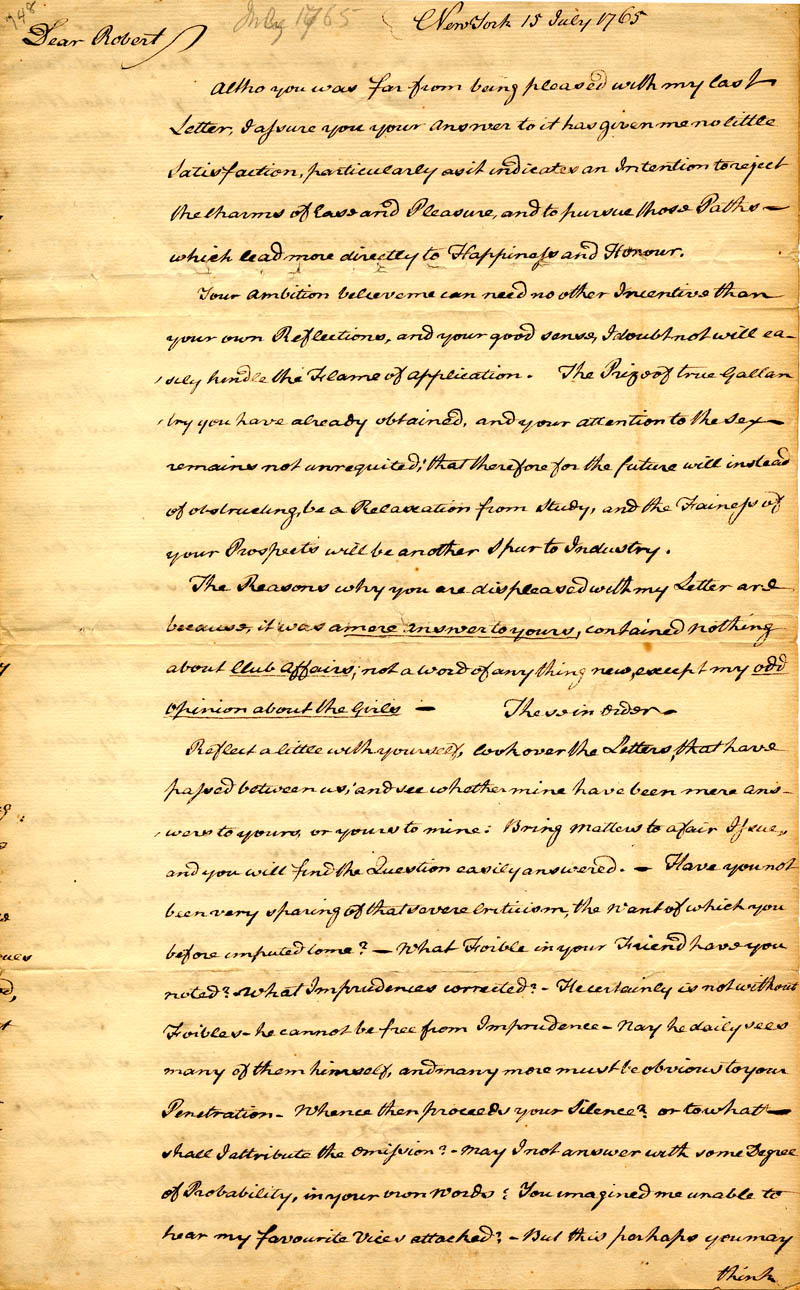 748
July 1765
New York 15 July 1765
Dear Robert
Altho you was far from being pleased with my last
Letter, I assure you your answer to it has given me no little
satisfaction, particularly as it indicates an Intention to reject
the charms of Ease and Pleasure, and to pursue those Paths —
which lead more directly to Happiness and Honour.
Your ambition believe me can need no other Incentive than
your own Reflections, and your good sense, I doubt not will ea-
sily kindle the Flame of application. The Prize of true Gallan
try you have already obtained, and your attention to the sex —
remains not unrequited; that therefore for the future will instead
of obstructing, be a Relaxation from study, and the Fainess of
your Prospects will be another Spur to Industry.
The Reasons why you are displeased with my Letter are
because, it was a mere answer to yours, contained nothing
about Club Affairs; not a word of any thing new, except my odd
opinion about the Girls — These in order —
Reflect a little with yourself, look over the Letters, that have
passed between us; and see whether mine have been mere ans-
wers to yours, or yours to mine: Bring matters to a fair Issue,
and you will find the Question easily answered. — Have you not
been very sparing of that severe Criticism, the want of which you
before imputed to me? — What Foible in your Friend have you
noted? What Imprudences corrected? - He certainly is not without
Foibles - he cannot be free from Imprudence - Nay he daily sees
many of them himself, and many more must be obvious to your
Penetration - Whence then proceeds your Silence? or to what —
shall I attribute the omission? - may I not answer with some Degree
of Probability, in your own words? You imagined me unable to
hear my favourite Vices attacked? - But this perhaps you may
think